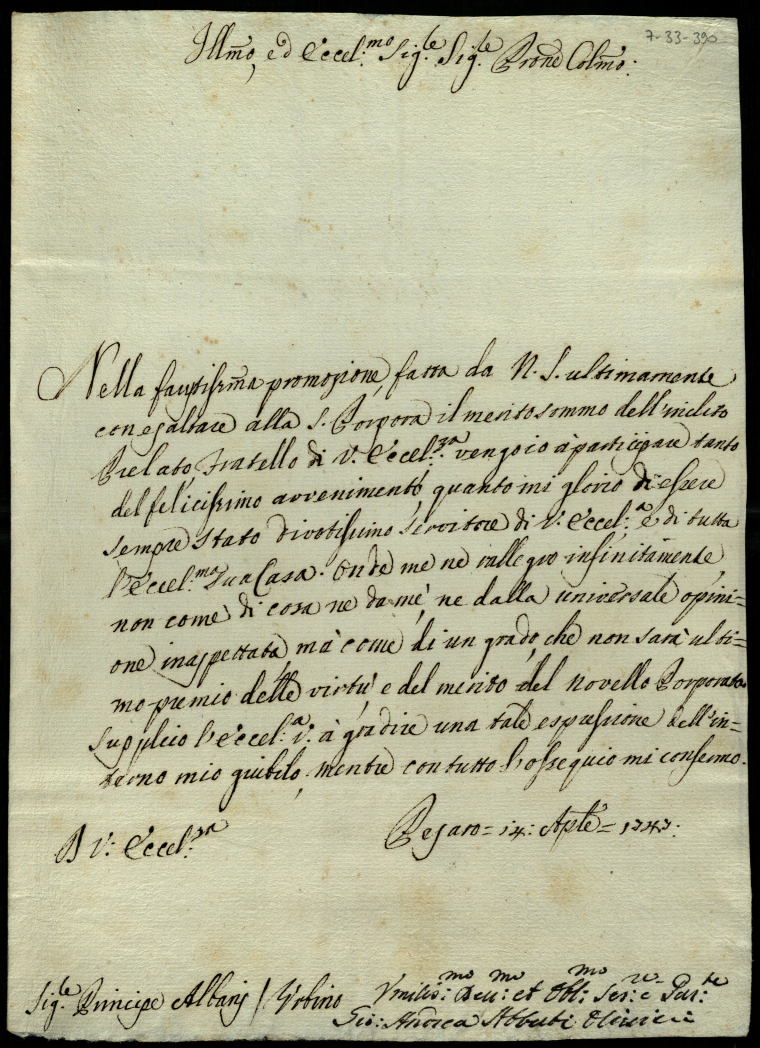 7-33-390
Illmo, ed Eccel:mo Sig:le Sig:le Prone Colmo:
Nella faustissma promozione, fatta da N. S. ultimamente
con esaltare alla S. Porpora il merito sommo dell'inclito
Prelato, Fratello di V. Eccel:za vengo io à participare tanto
del felicissimo avvenimento, quanto mi glorio di essere
sempre stato divotissimo servitore di V. Eccel:a e di tutta
l'Eccel:ma sua Casa. Onde me ne rallegro infinitamente
non come di cosa ne da me, ne dalla universale opini=
one inaspettata, mà come di un grado, che non sarà ulti=
mo premio delle virtù e del merito del novello Porporato.
Supplico l'Eccel:a V. à gradire una tale espressione dell'in=
terno mio giubilo, mentre con tutto l'ossequio mi confermo.
D V: Eccel:za
Pesaro = 14: Aple = 1747:
Sig:le Principe Albanj / Urbino
Umilis:mo Deu:mo et Obl:mo Ser:re e Par:te
Gio: Andrea Abbati Olivieri